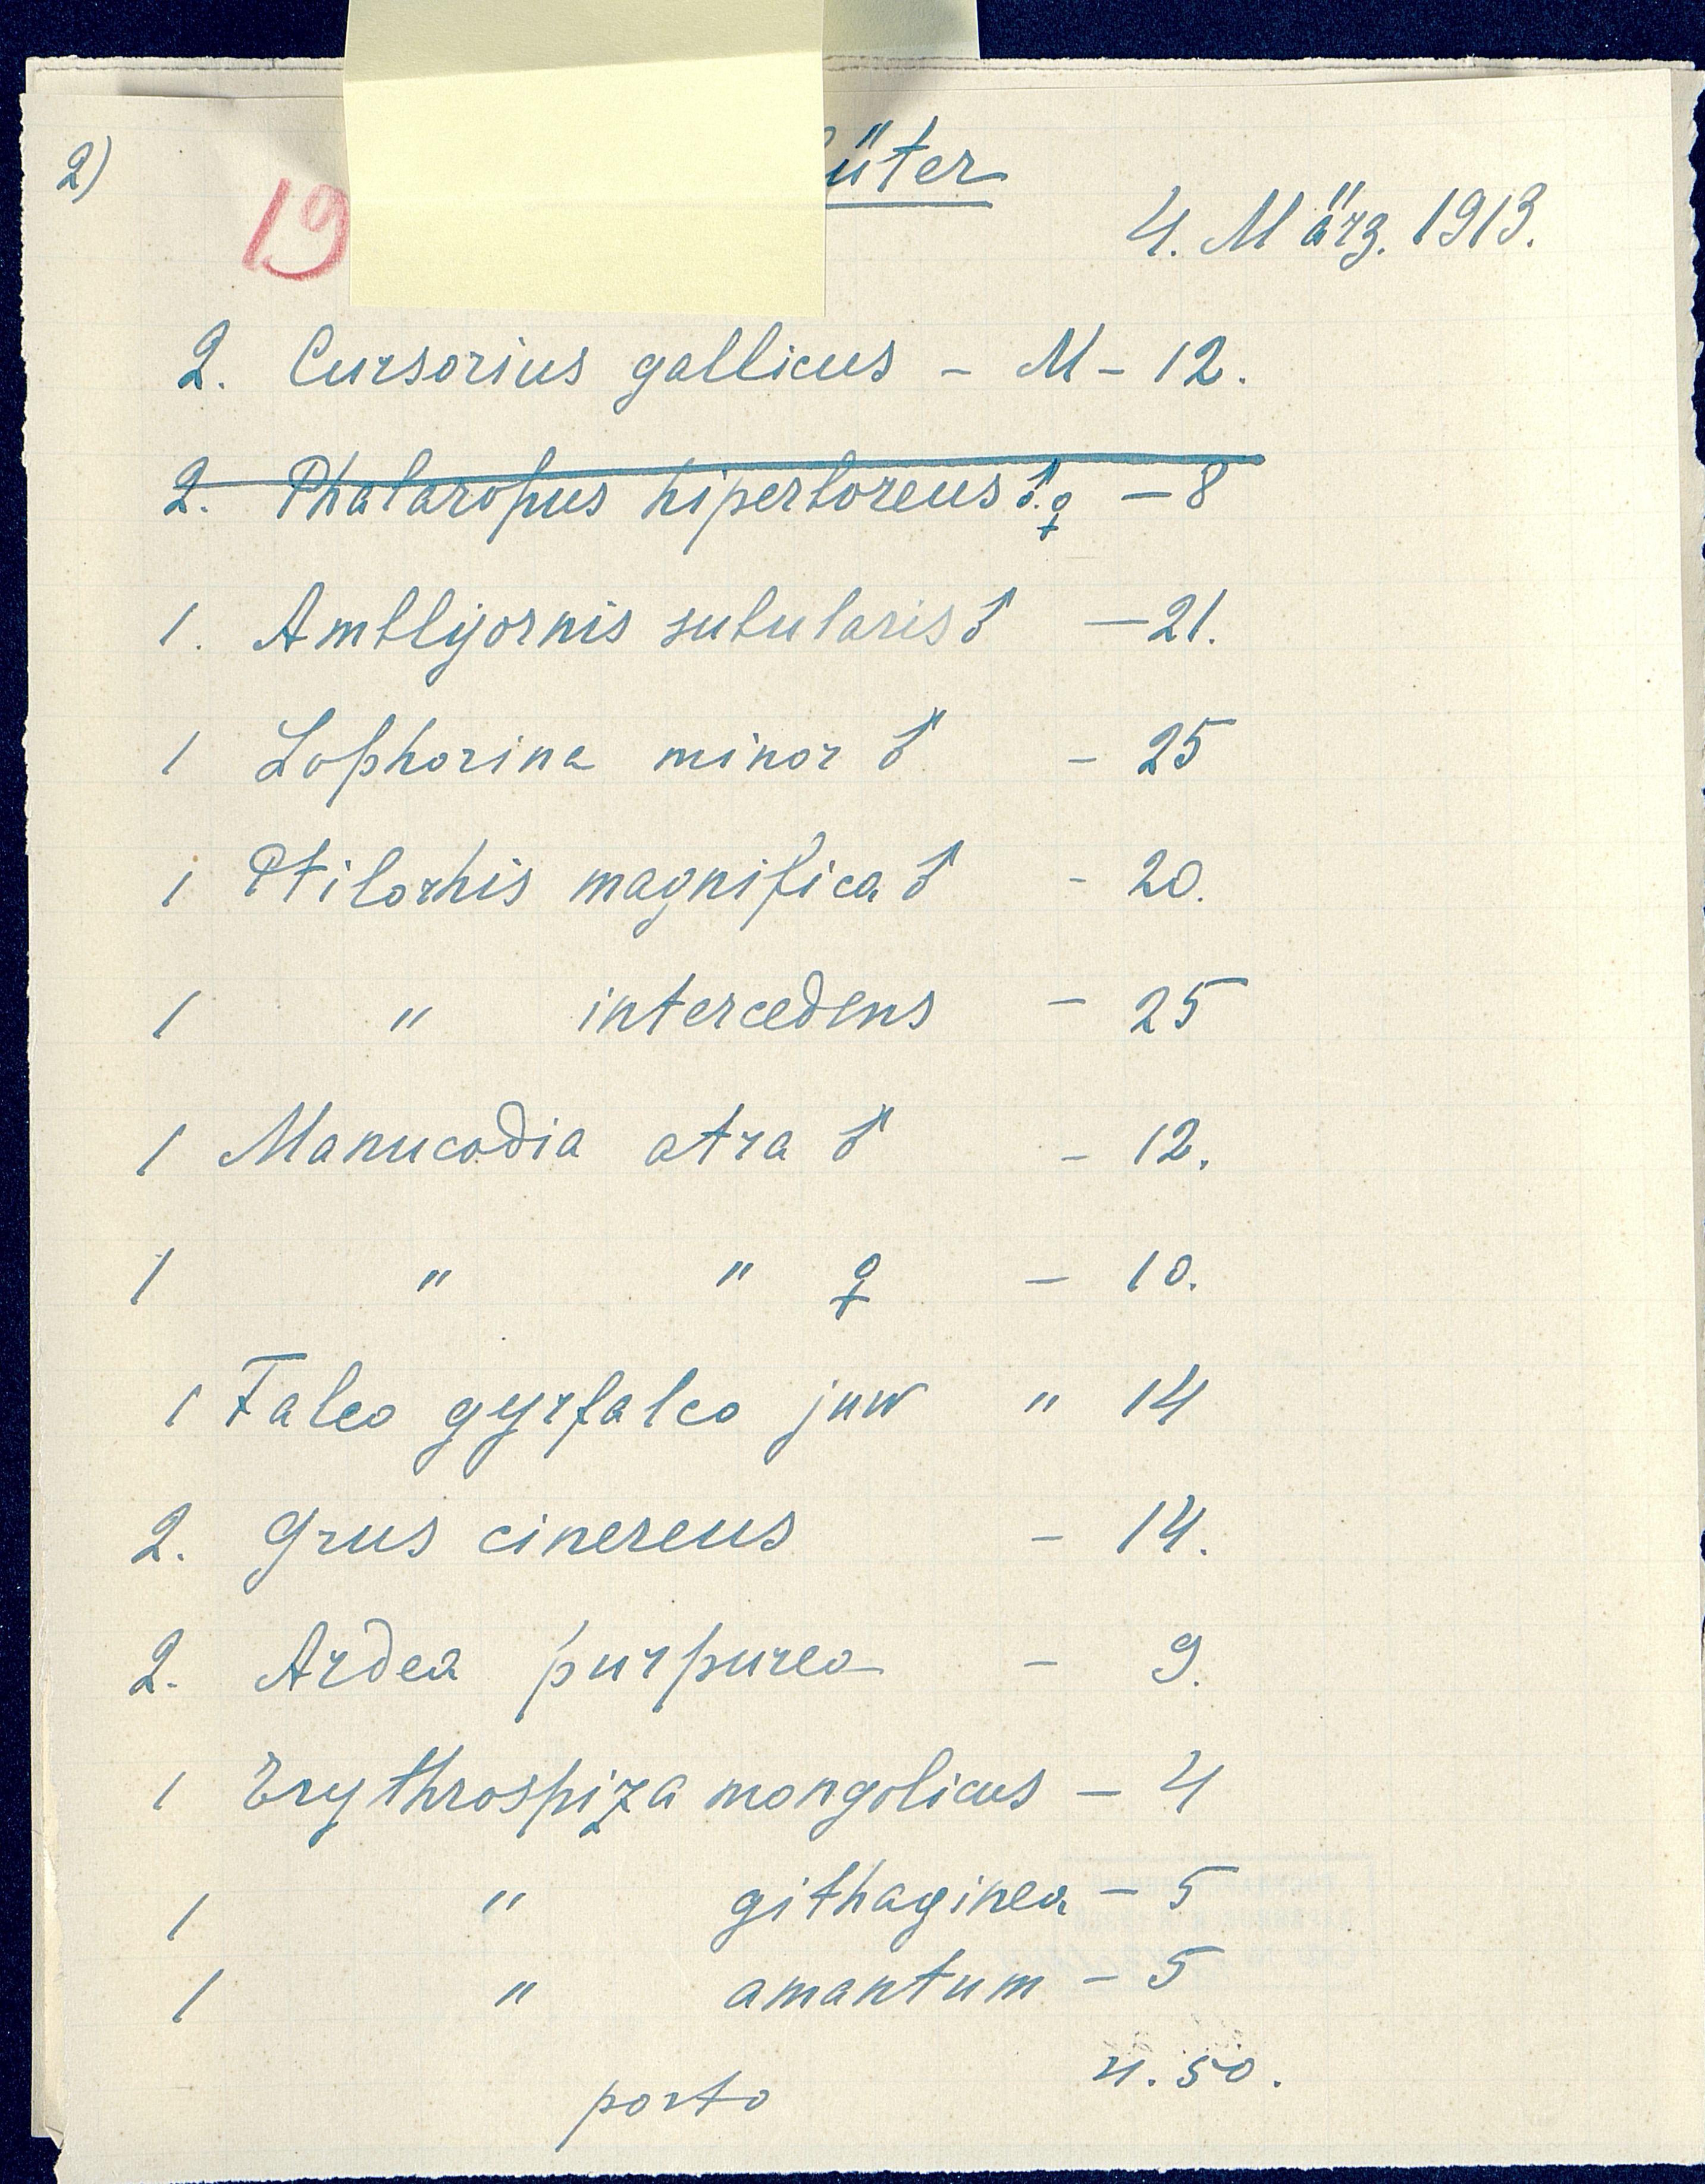 2)
üter
19
4. März. 1913.
2. Cursorius gallicus - M - 12.
2. Phalaropus hiperboreus ♂.♀ - 8
1. Amblyornis subularis ♂ - 21.
1 Lophorina minor ♂ - 25
1 Ptilorhis magnifica ♂ - 20.
1 " intercedens - 25
1 Manucodia atra ♂ - 12.
1 " " ♀ - 10.
1 Falco gyrfalco juv " 14
2. Grus cinereus - 14.
2. Ardea purpurea - 9.
1 Erythrospiza mongolicus - 4
1 " githaginea - 5
1 " amantum - 5
porto 4.50.